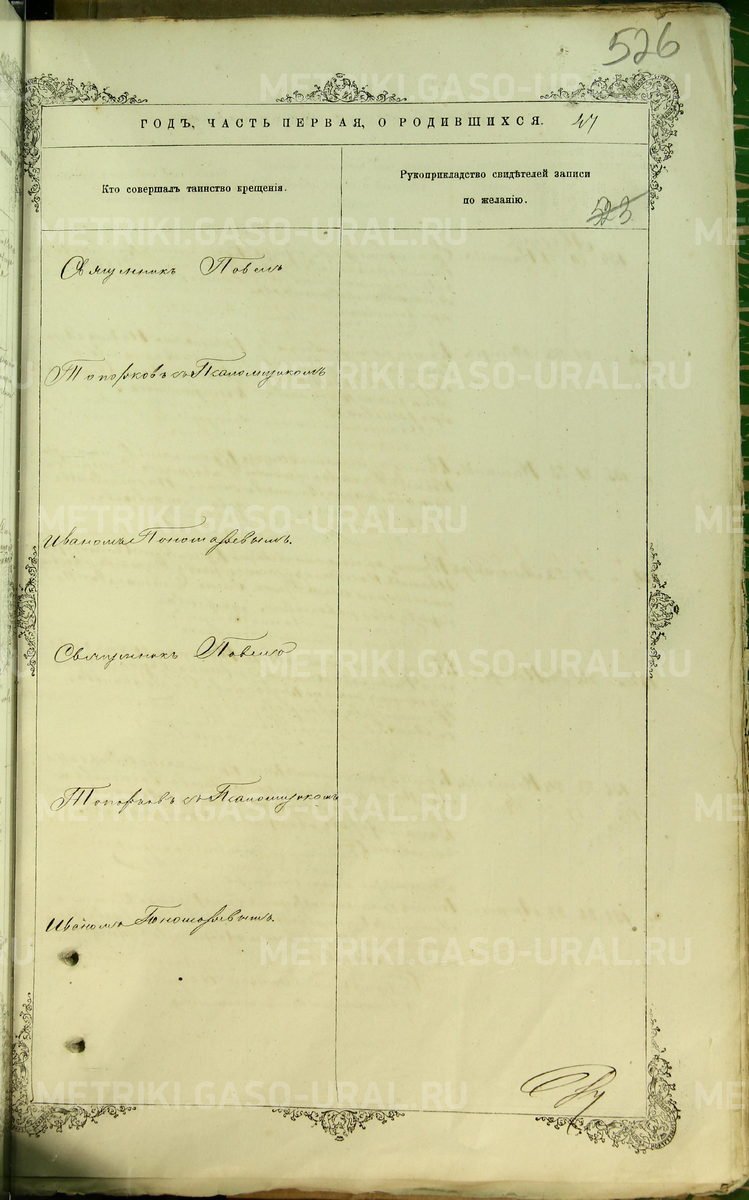 526
METRIKI.GASO-URAL.RU
ГОДЪ, ЧАСТЬ ПЕРВАЯ, О РОДИВШИХСЯ.
Кто совершалъ таинство крещенія.
Рукоприкладство свидѣтелей записи
по желанію.
523
METRIKI.GASO-URAL.RU
Священникъ Павелъ
METRIKI.GASO-URAL.RU
Топорковъ съ Псаломщикомъ
METRIKI.GASO-URAL.RU
Иваномъ Пономаревымъ.
Священникъ Павелъ
METRIKI.GASO-URAL.RU
Топорковъ съ Псаломщикомъ
METRIKI.GASO-URAL.RU
Иваномъ Пономаревымъ.
METRIKI.GASO-URAL.RU
METRIKI.GASO-URAL.RU